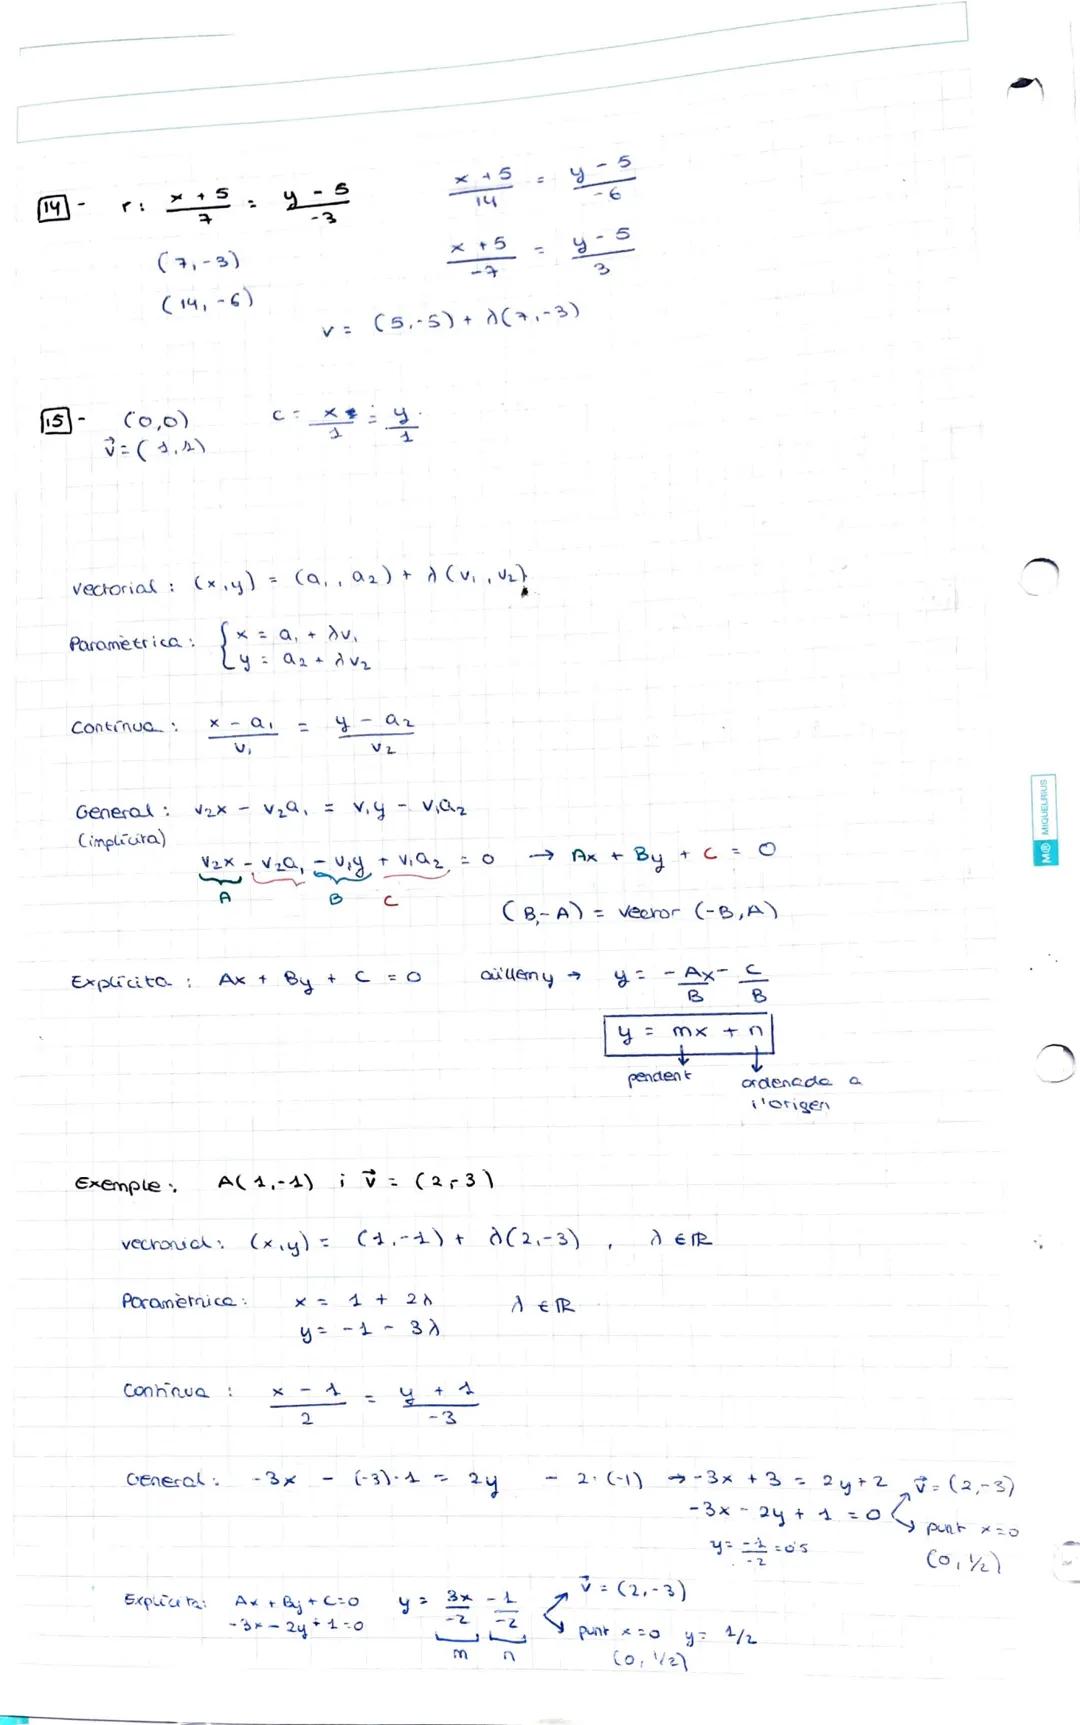 14 - r: x + 5 / 7 = y - 5 / -3
x + 5 / 14 = y - 5 / -6
(7,-3)
x + 5 / -7 = y - 5 / 3
(14,-6)
v = (5,-5) + λ(7,-3)
15 - (0,0) c = x / 1 = y / 1
v⃗ = (1,1)
Vectorial: (x,y) = (a₁, a₂) + λ(v₁, v₂)
Paramètrica: { x = a₁ + λv₁
y = a₂ + λv₂
Contínua: x - a₁ / v₁ = y - a₂ / v₂
General: v₂x - v₂a₁ = v₁y - v₁a₂
(implícita)
v₂x - v₂a₁ - v₁y + v₁a₂ = 0 → Ax + By + C = 0
A B C
(B,-A) = vector (-B,A)
Explícita: Ax + By + C = 0 aïllem y → y = - Ax / B - C / B
y = mx + n
pendent ordenada a
l'origen
Exemple: A(1,-1) i v⃗ = (2,-3)
vectorial: (x,y) = (1,-1) + λ(2,-3), λ ∈ ℝ
Paramètrica: x = 1 + 2λ λ ∈ ℝ
y = -1 - 3λ
Contínua: x - 1 / 2 = y + 1 / -3
General: -3x - (-3)·1 = 2y - 2·(-1) → -3x + 3 = 2y + 2 v⃗ = (2,-3)
-3x - 2y + 1 = 0 punt x=0
y = -1 / -2 = 0'5 (0, 1/2)
Explícita: Ax + By + C = 0 y = 3x / -2 - 1 / -2 v⃗ = (2,-3)
-3x - 2y + 1 = 0 punt x=0 y = 1/2
m n (0, 1/2)
MR MIQUELRIUS